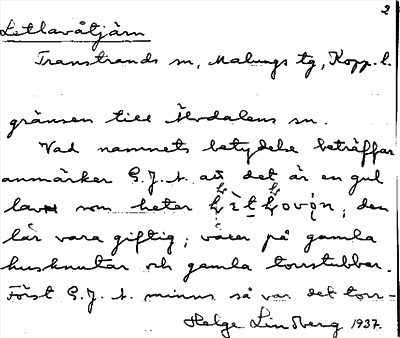 2
Letlavåtjärn
Transtrands sn, Malungs tg, Kopp. l.
gränsen till Älvdalens sn.
Vad namnets betydelse beträffar
anmärker G.J.A. att det är en gul
lav som heter
den
lär vara giftig; växer på gamla
husknutar och gamla torrstubbar.
Först G.J.A. minns så var det torr-
Helge Lindberg 1937.